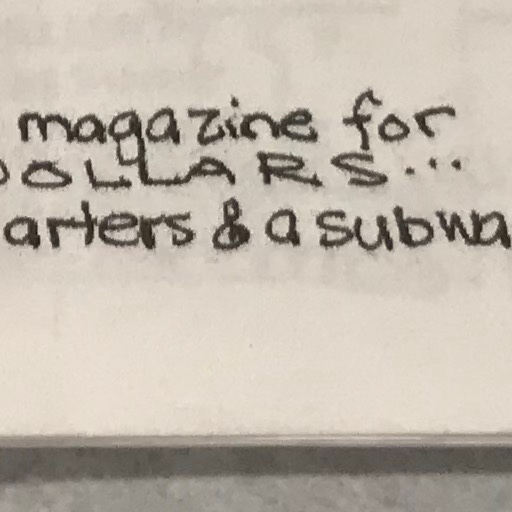 magazine for
DOLLARS...
arters & a subwa